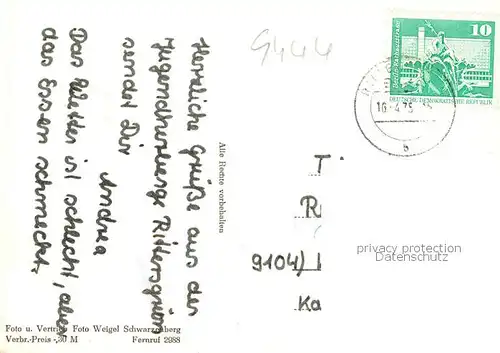 Herrliche Grüße aus der
Jugendherberge Rittersgrün
sendet Dir
Andrea
Das Wetter ist schlecht, aber
das Essen schmeckt.
Alle Rechte vorbehalten
Foto u. Vertrieb Foto Weigel Schwarzenberg
Verbr.-Preis -,30 M Fernruf 2988
9444
10
DEUTSCHE DEMOKRATISCHE REPUBLIK
16.4.75
b
T
R
9104/
Ka
privacy protection
Datenschutz